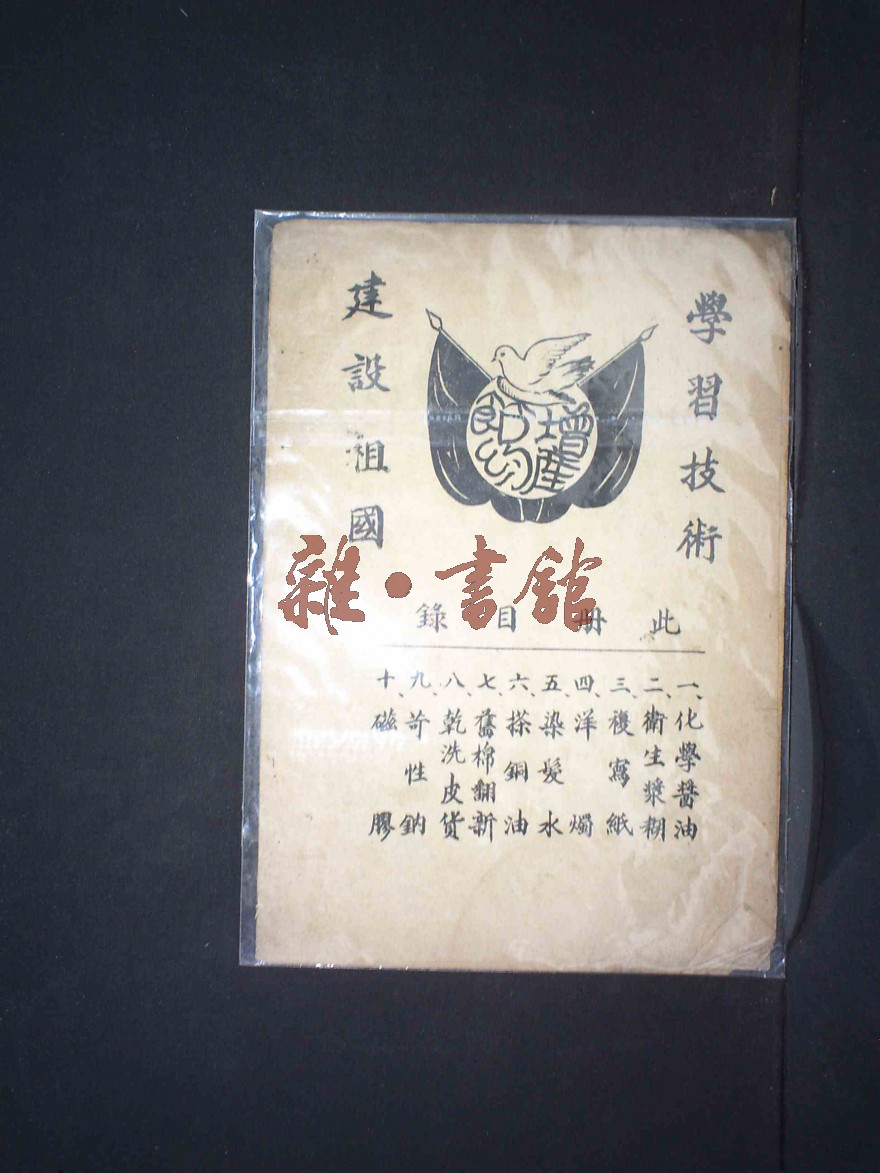 學習技術
建設祖國
增產節約
雜·書館
此册目錄
一、化學醬油
二、衛生漿糊
三、複寫紙
四、洋燭
五、染髮水
六、搽銅油
七、舊棉翻新
八、乾洗皮貨
九、苛性鈉
十、磁膠